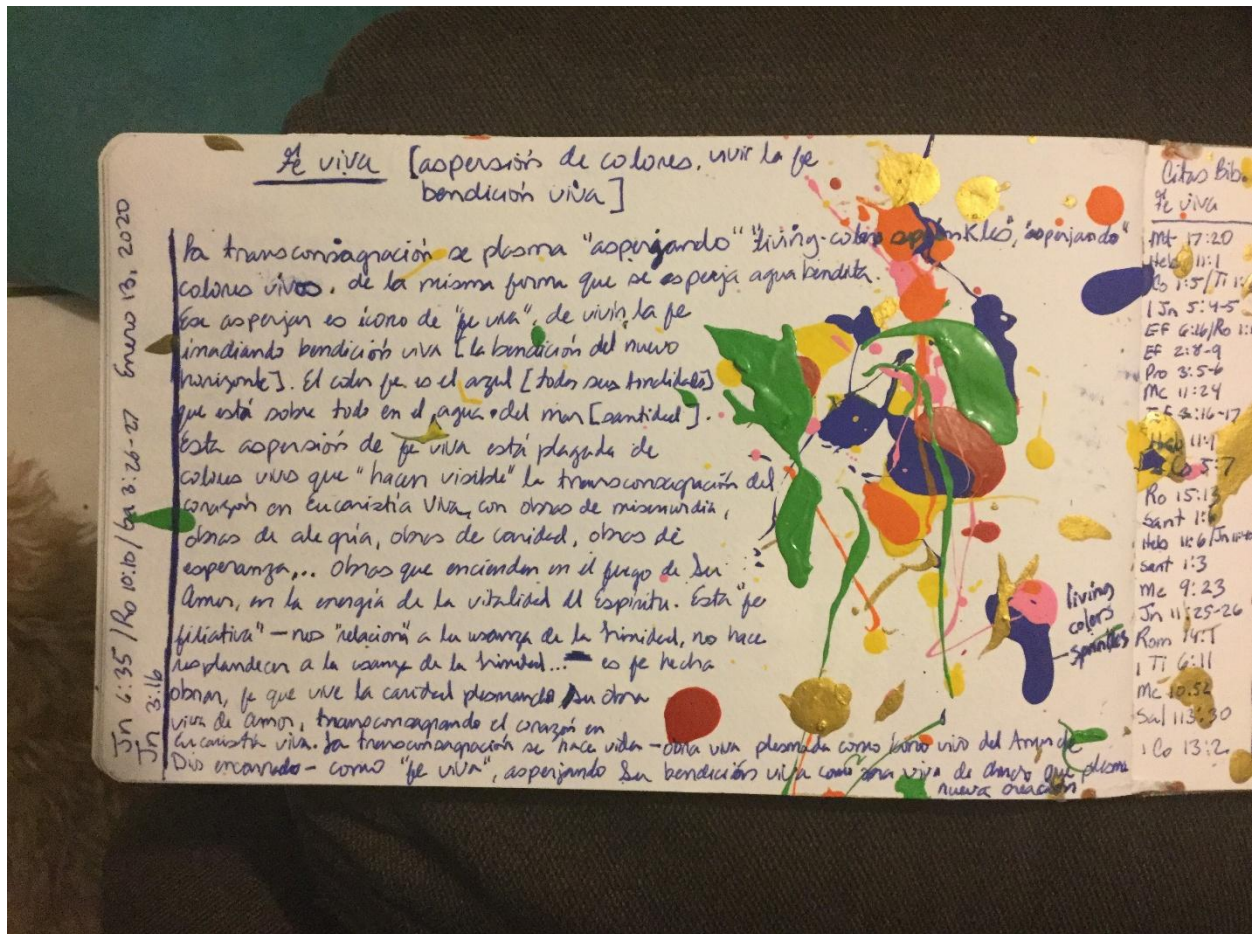 Fe viva [aspersión de colores. vivir la fe
bendición viva]
Enero 13, 2020
Jn 6:35 / Ro 10:10 / Ga 3:26-27
Jn 3:16
La transconsagración se plasma "asperjando" "living-colors sprinkles", "asperjando"
colores vivos, de la misma forma que se asperja agua bendita.
Ese asperjar es ícono de "fe viva", de vivir la fe
irradiando bendición viva [la bendición del nuevo
horizonte]. El color fe es el azul [todas sus tonalidades]
que está sobre todo en el agua del mar [santidad].
Esta aspersión de fe viva está plagada de
colores vivos que "hacen visible" la transconsagración del
corazón en Eucaristía viva, con obras de misericordia,
obras de alegría, obras de caridad, obras de
esperanza,... Obras que encienden en el fuego de Su
Amor, en la energía de la vitalidad del Espíritu. Esta "fe
filiativa" — nos "relaciona" a la usanza de la Trinidad, no hace
resplandecer a la usanza de la Trinidad... es fe hecha
obras, fe que vive la caridad plasmando Su obra
viva de amor, transconsagrando el corazón en
Eucaristía viva. La transconsagración se hace vida — obra viva plasmada como ícono vivo del Amor de
Dios encarnado — como "fe viva", asperjando Su bendición viva como obra viva de amor que plasma
nueva creación
living
colors
sprinkles
Citas Bib.
Fe viva
Mt 17:20
Heb 11:1
Co 1:5/Ti
1 Jn 5:4-5
Ef 6:16/Ro
Ef 2:8-9
Pro 3:5-6
Mc 11:24
Ef 3:16-17
Heb 11:1
Co 5:7
Ro 15:13
Sant
Heb 11:6/Jn
Sant 1:3
Mc 9:23
Jn 11:25-26
Rom 14:1
1 Ti 6:11
Mc 10:52
Sal 113:30
1 Co 13:2